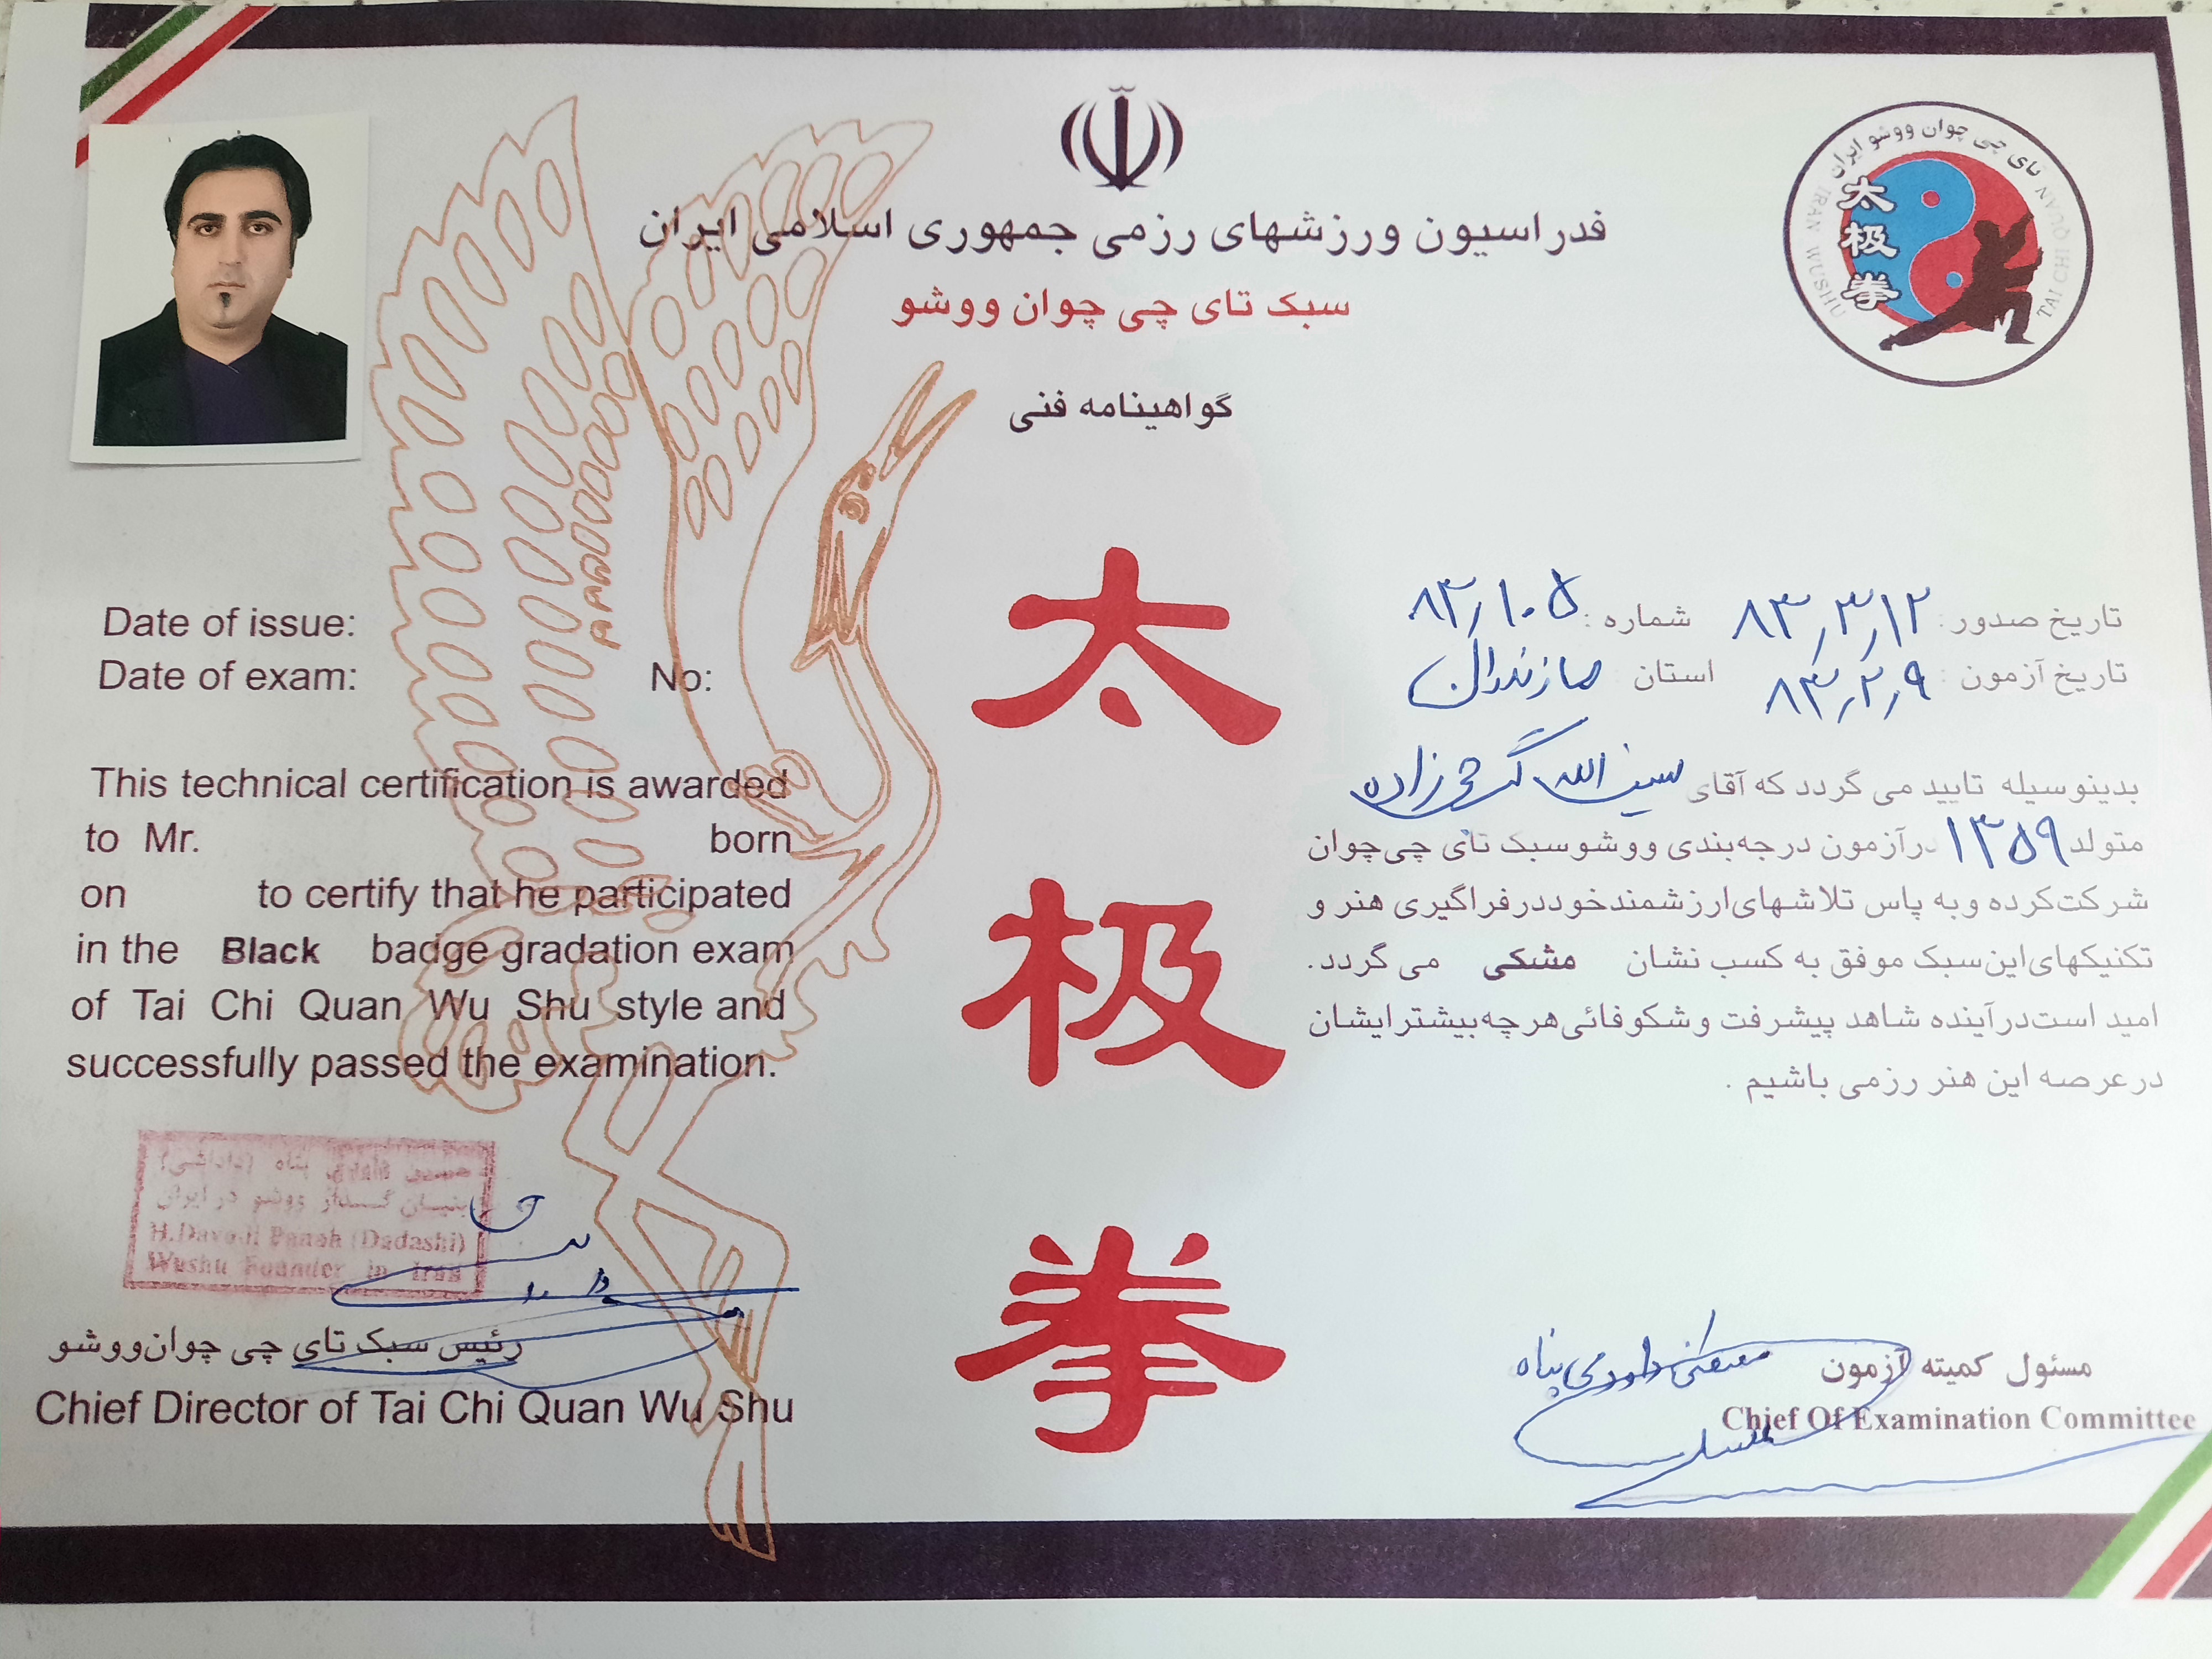 فدراسیون ورزشهای رزمی جمهوری اسلامی ایران
سبک تای چی چوان ووشو
گواهینامه فنی
تای چی چوان ووشو ایران
IRAN WUSHU
TAI CHI QUAN
太极拳
太
极
拳
تاریخ صدور: ۸۳,۳,۱۲ شماره: ۸۳,۱۰۵
تاریخ آزمون: ۸۳,۲,۹ استان: مازندران
بدینوسیله تایید می گردد که آقای سیف الله
متولد ۱۳۵۹ در آزمون درجه‌بندی ووشو سبک تای چی‌چوان
شرکت‌کرده و به پاس تلاشهای ارزشمند خود در فراگیری هنر و
تکنیکهای این سبک موفق به کسب نشان مشکی می گردد.
امید است در آینده شاهد پیشرفت و شکوفائی هر چه بیشتر ایشان
در عرصه این هنر رزمی باشیم .
Date of issue:
Date of exam: No:
This technical certification is awarded
to Mr. born
on to certify that he participated
in the Black badge gradation exam
of Tai Chi Quan Wu Shu style and
successfully passed the examination.
حسین داودی پناه (داداشی)
بنیان گذار ووشو در ایران
H.Davodi Panah (Dadashi)
Wushu Founder in Iran
رئیس سبک تای چی چوان ووشو
Chief Director of Tai Chi Quan Wu Shu
مسئول کمیته آزمون
داودی پناه
Chief Of Examination Committee